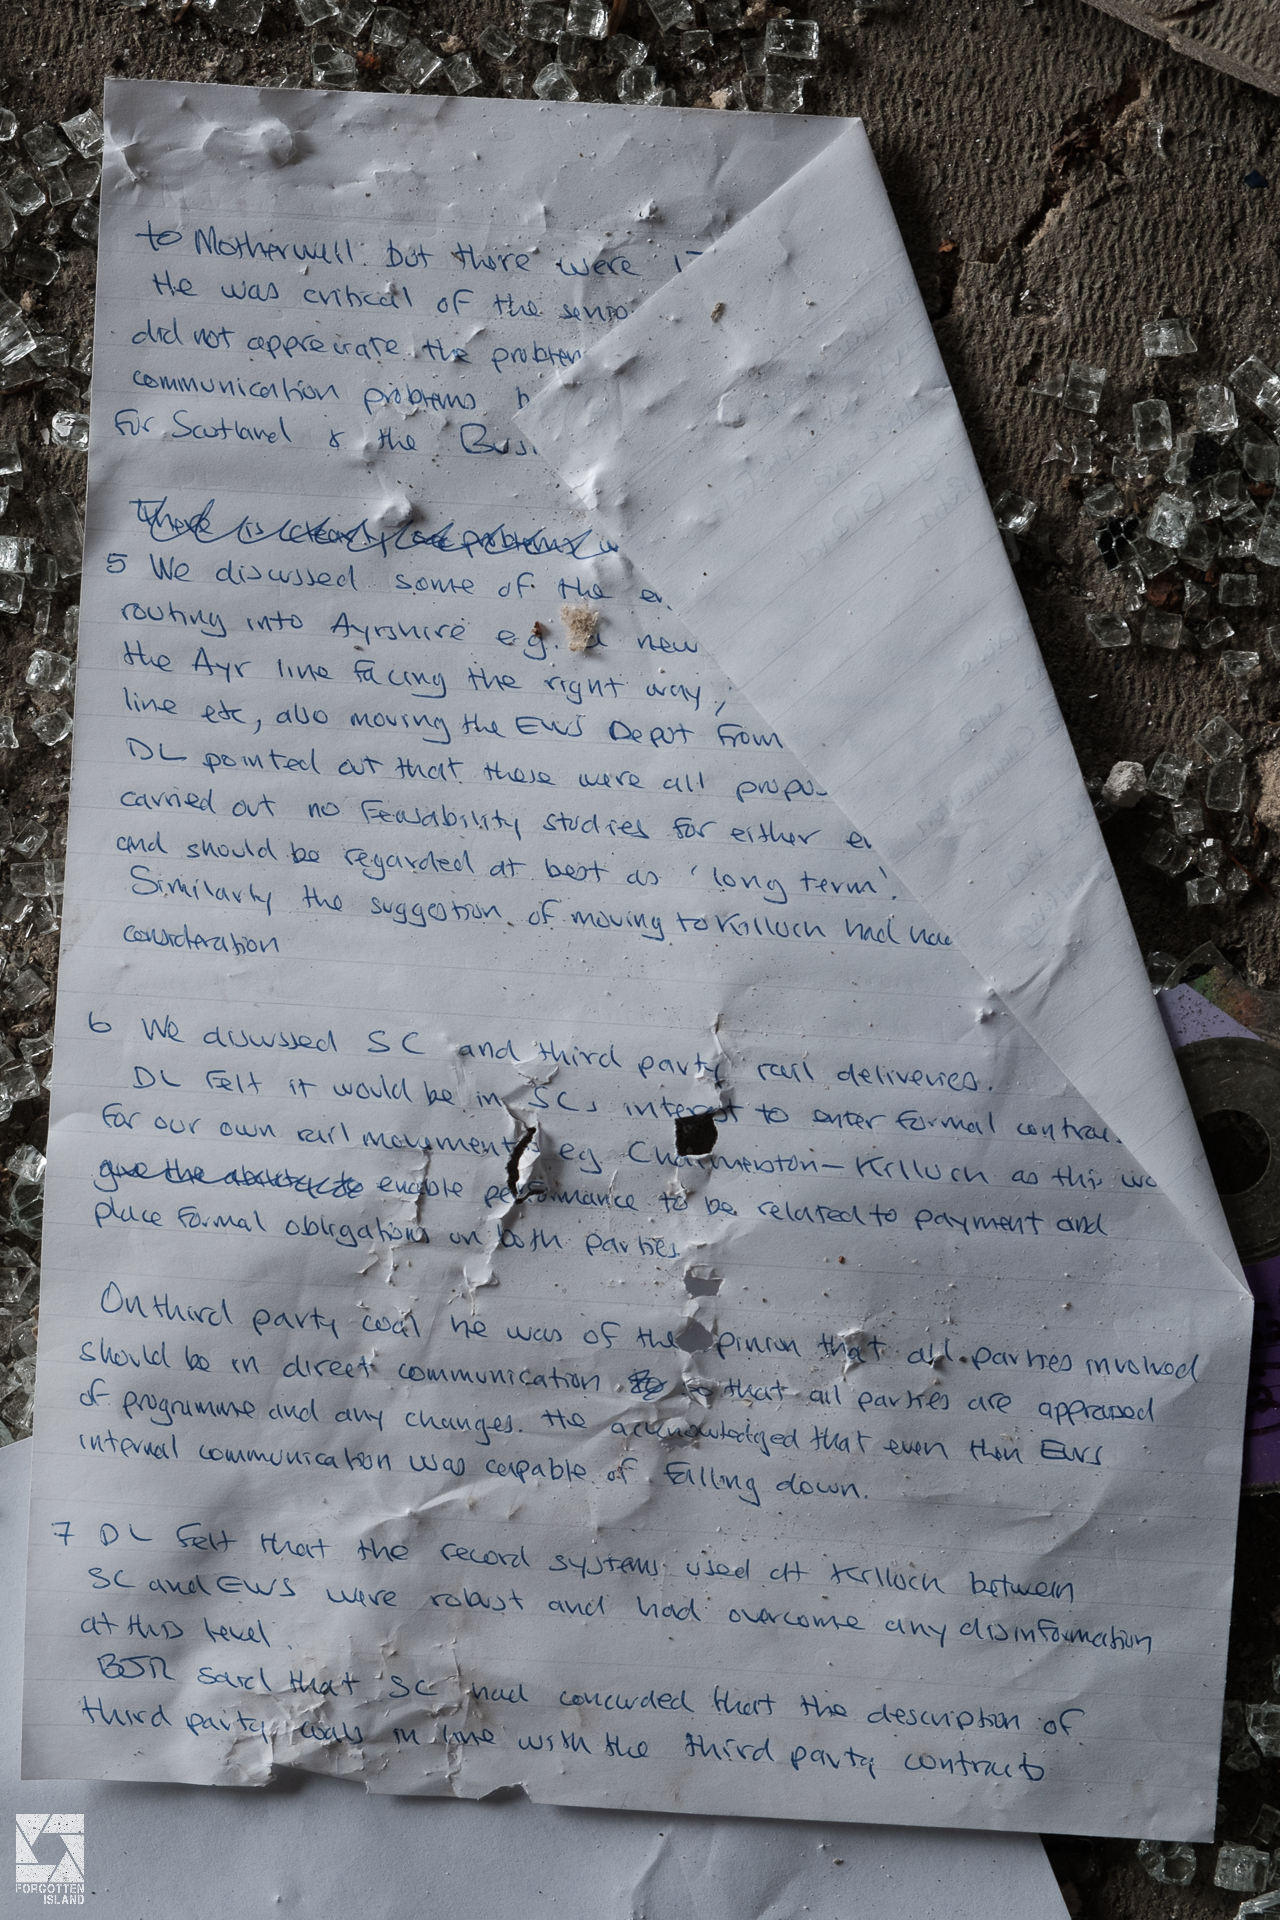 to Motherwell but there were
He was critical of the senio
did not appreciate the problem
communication problems
For Scotland & the Busi
There is clearly problems
5 We discussed some of the
routing into Ayrshire e.g. a new
the Ayr line facing the right way,
line etc, also moving the EWS Depot from
DL pointed out that these were all propos
carried out no Feasability studies for either
and should be regarded at best as 'long term'.
Similarly the suggestion of moving to Killoch had had
consideration
6 We discussed SC and third party rail deliveries.
DL felt it would be in SCs interest to enter formal contrac
for our own rail movements eg Chalmerston - Killoch as this wo
give the ability to enable performance to be related to payment and
place formal obligations on both parties.
On third party coal he was of the pinion that all parties involved
should be in direct communication so that all parties are appraised
of programme and any changes. He acknowledged that even then EWS
internal communication was capable of falling down.
7 DL felt that the record systems used at Killoch between
SC and EWS were robust and had overcome any disinformation
at this level.
BJR said that SC had concluded that the description of
third party coals in line with the third party contracts
FORGOTTEN
ISLAND